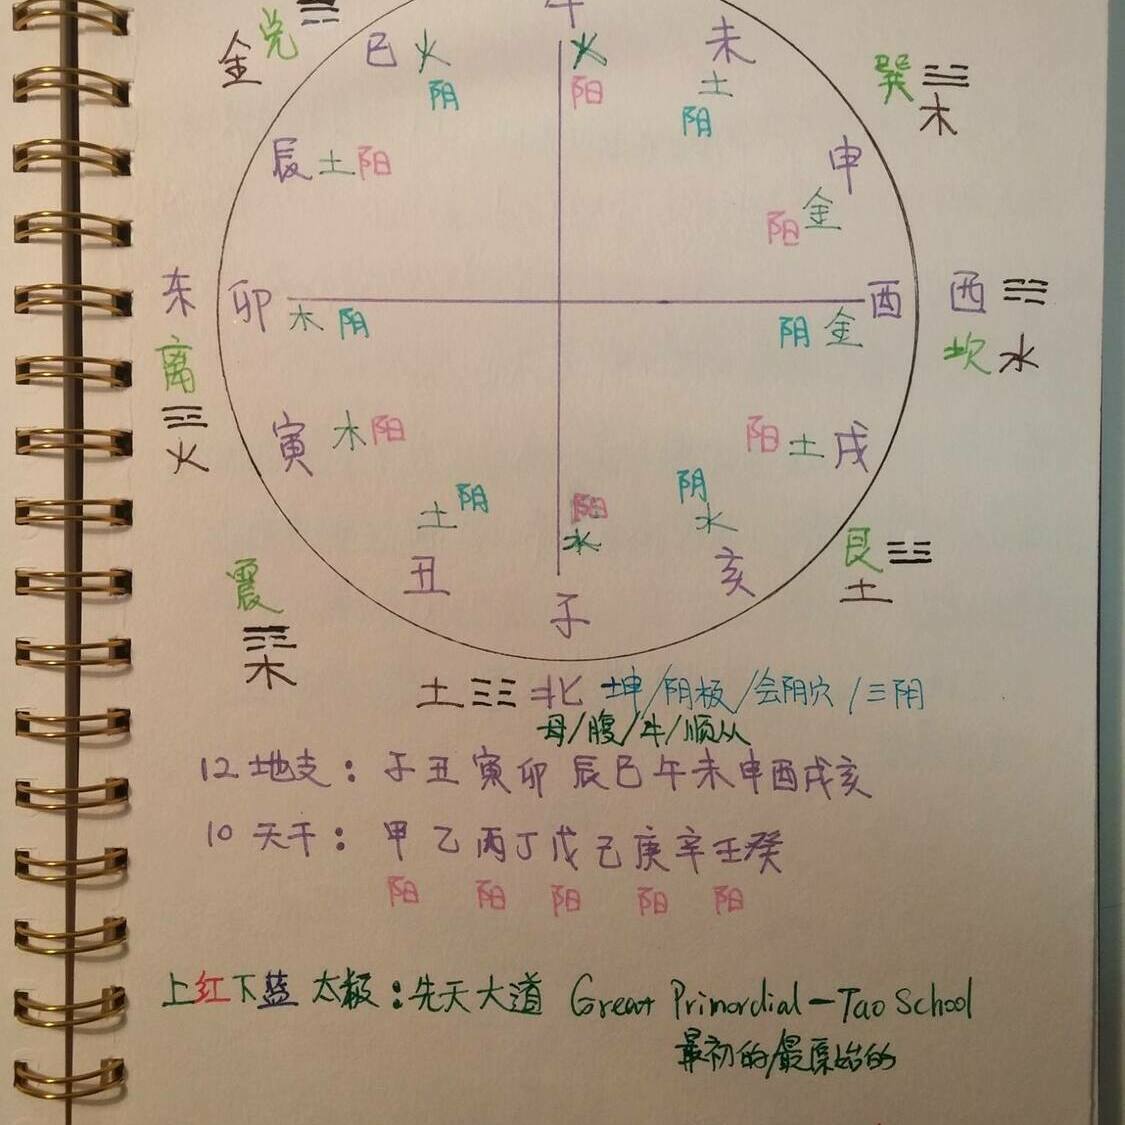 兑
金
巳 火
阴
午
火
阳
未
土
阴
巽 ☴
木
辰 土 阳
申
阳 金
东 卯 木 阴
阴 金 酉 西
坎 水
离
火
寅 木 阳
阳 土 戌
土 阴
阳
水
阴
水
丑
子
亥
艮
土
震
木
土 ☷ 北 坤/阴极/会阴穴/三阴
母/腹/牛/顺从
12地支：子丑寅卯辰巳午未申酉戌亥
10天干：甲乙丙丁戊己庚辛壬癸
阳 阳 阳 阳 阳
上红下蓝 太极：先天大道 Great Primordial-Tao School
最初的/最原始的